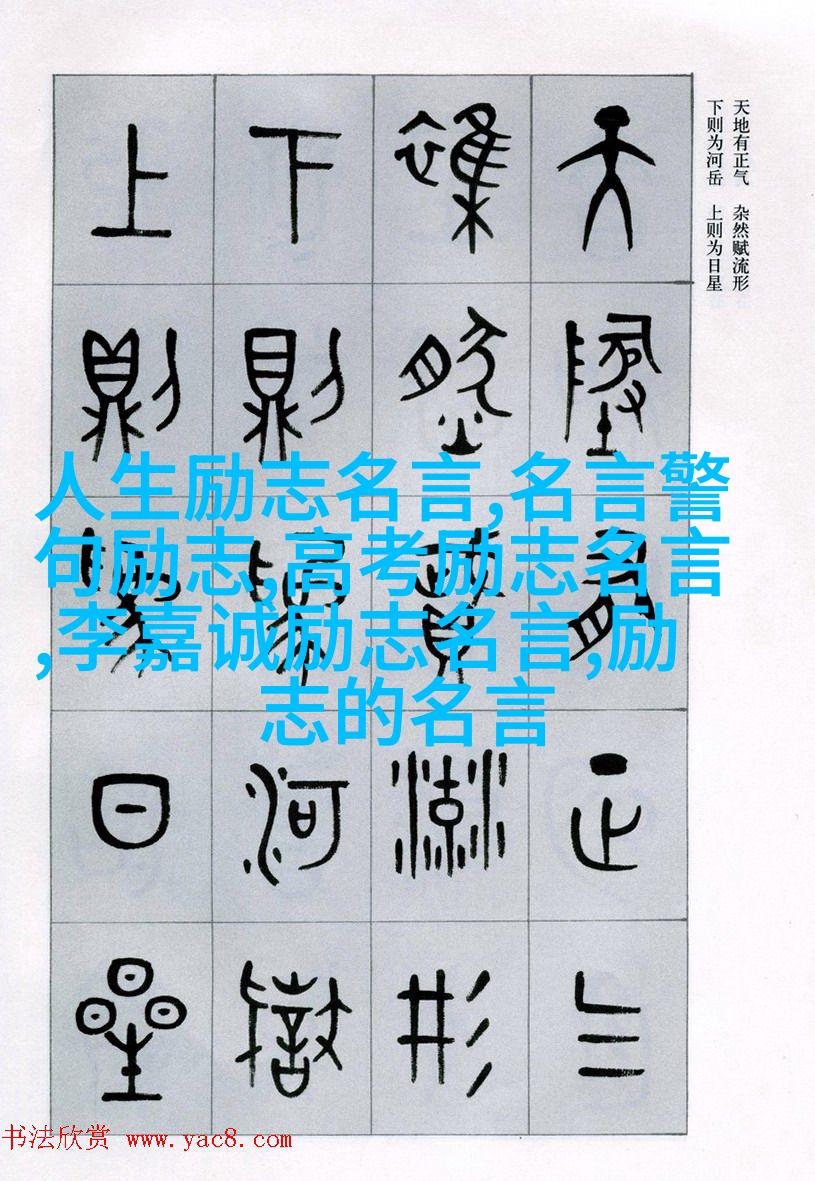 天地有正气 杂然赋流形
下则为河岳 上则为日星
天地有正气
雜然賦流形
下則為河嶽
上則為日星
人生励志名言,名言警
句励志,高考励志名言
,李嘉诚励志名言,励
志的名言
书法欣赏 www.yac8.com